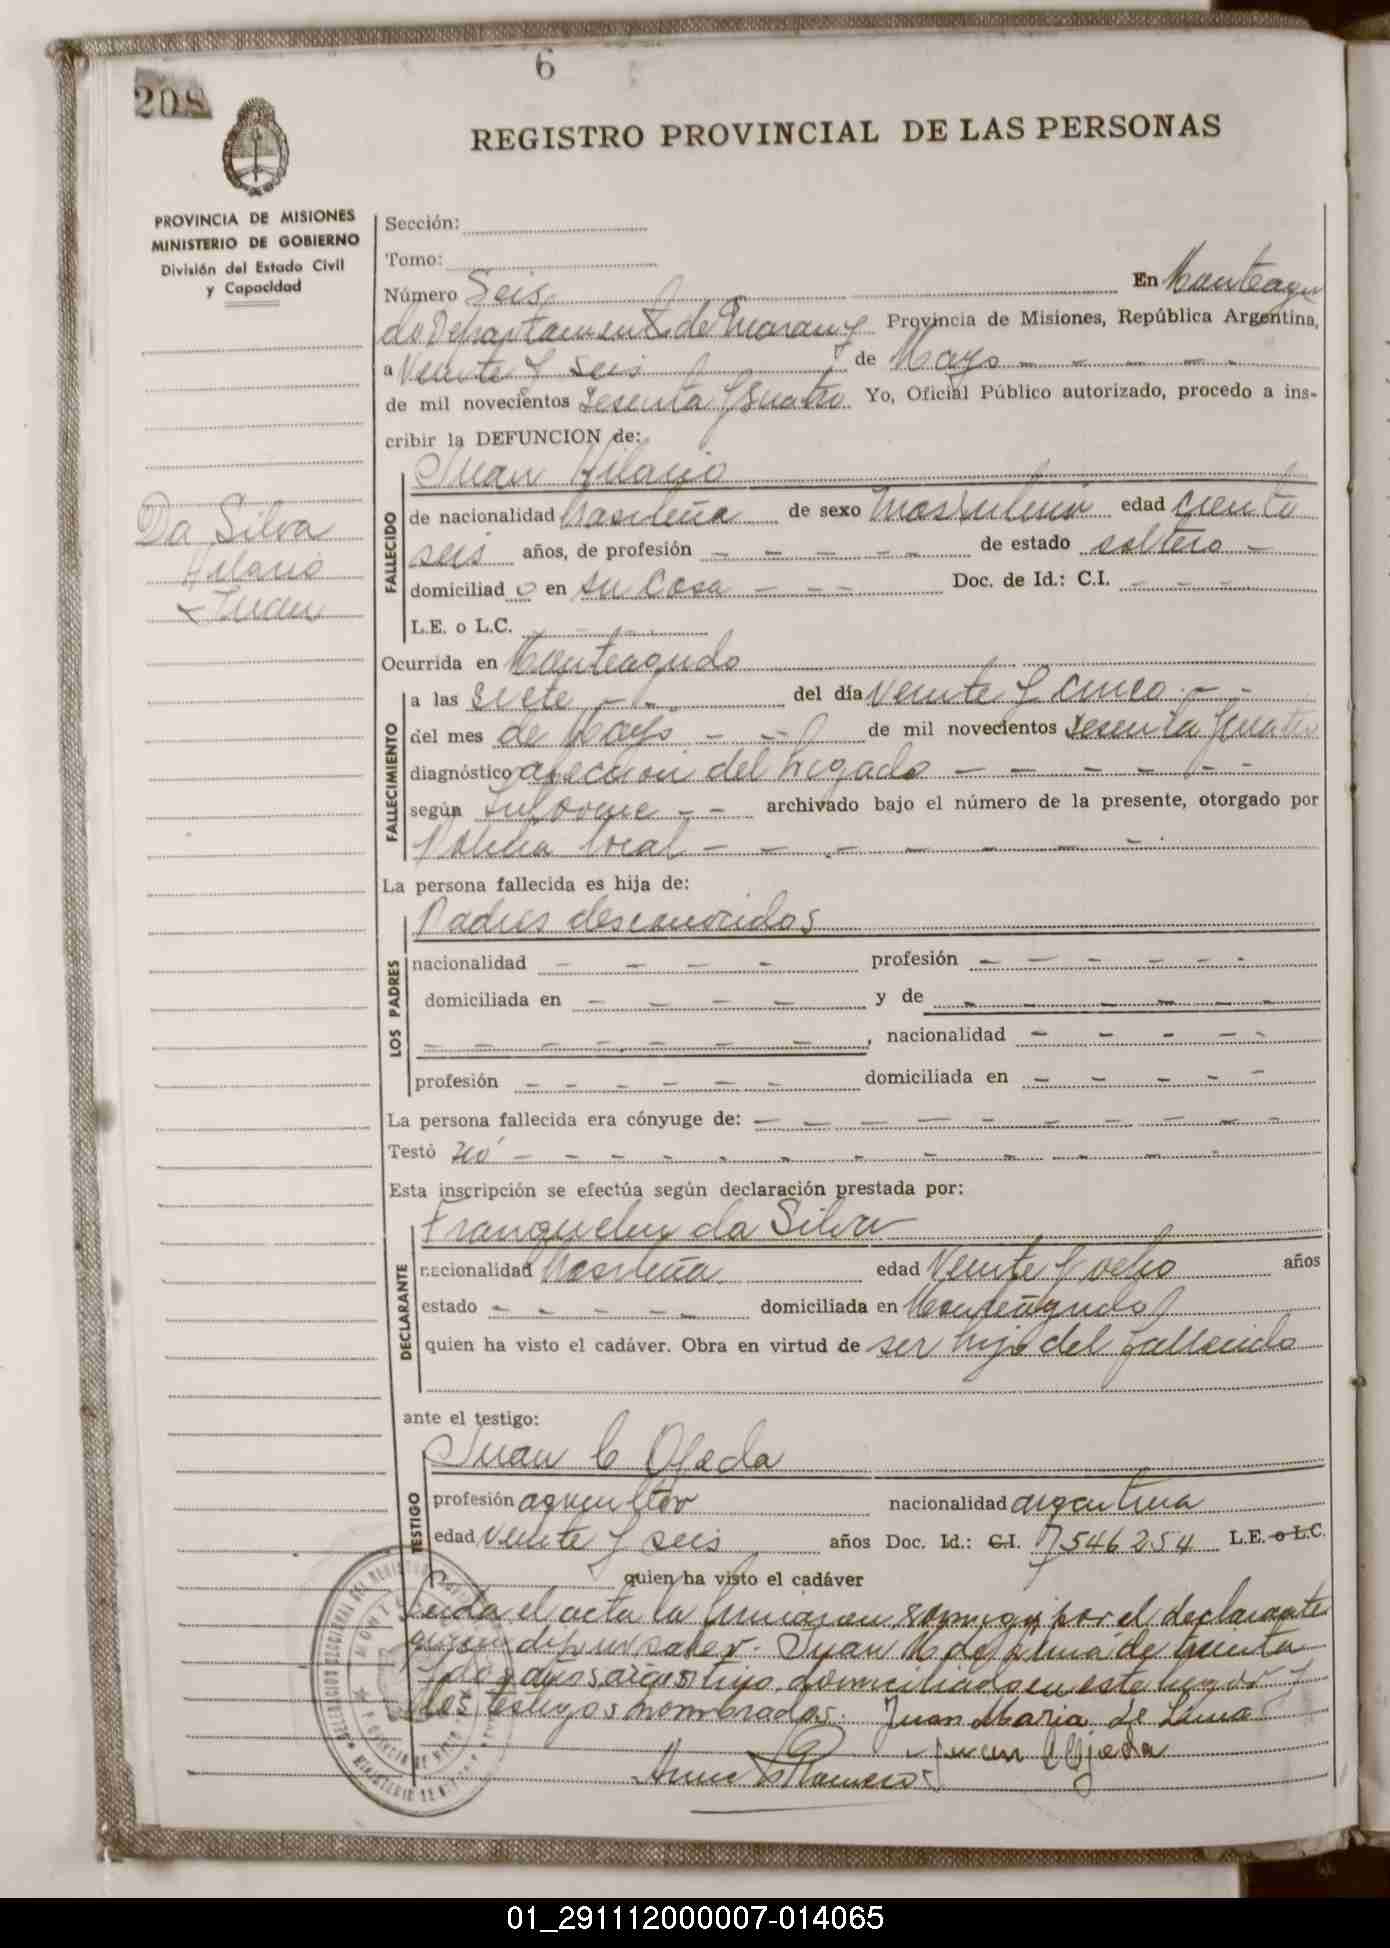 6
208
REGISTRO PROVINCIAL DE LAS PERSONAS
PROVINCIA DE MISIONES
MINISTERIO DE GOBIERNO
División del Estado Civil
y Capacidad
Da Silva
Hilario
Juan
Sección:
Tomo:
Número Seis En Monteagu
do Departamento de Guarany Provincia de Misiones, República Argentina,
a Veinte y seis de Mayo
de mil novecientos sesenta y cuatro Yo, Oficial Público autorizado, procedo a ins-
cribir la DEFUNCION de:
FALLECIDO
Juan Hilario
de nacionalidad brasileña de sexo masculino edad ciento
seis años, de profesión - - - - - de estado soltero -
domiciliad o en su Casa - - - Doc. de Id.: C.I. - - -
L.E. o L.C.
Ocurrida en Monteagudo
FALLECIMIENTO
a las siete - - del día veinte y cinco - -
del mes de Mayo - - de mil novecientos sesenta y cuatro
diagnóstico afeccion del higado - - - - - -
según Informe - - archivado bajo el número de la presente, otorgado por
Policia local - - - - - - -
La persona fallecida es hija de:
LOS PADRES
Padres desconocidos
nacionalidad - - - - profesión - - - - - -
domiciliada en - - - - y de - - - - - -
- - - - - - - , nacionalidad - - - - -
profesión - - - - - - domiciliada en - - - - -
La persona fallecida era cónyuge de: - - - - - - - - -
Testó no - - - - - - - - - - -
Esta inscripción se efectúa según declaración prestada por:
DECLARANTE
da Silva
nacionalidad brasileña edad Veinte y ocho años
estado - - - - - domiciliada en Monteagudo
quien ha visto el cadáver. Obra en virtud de ser hijo del fallecido
ante el testigo:
TESTIGO
Juan C Ojeda
profesión agricultor nacionalidad argentina
edad veinte y seis años Doc. Id.: C.I. 7546254 L.E. o L.C.
quien ha visto el cadáver
Leida el acta la firman conmigo por el declarante
quien dijo no saber. Juan M de Lima de treinta
y dos años argentino, domiciliado en este lugar y
los testigos nombrados. Juan Maria de Lima
Juan C Ojeda
Romero
01_291112000007-014065